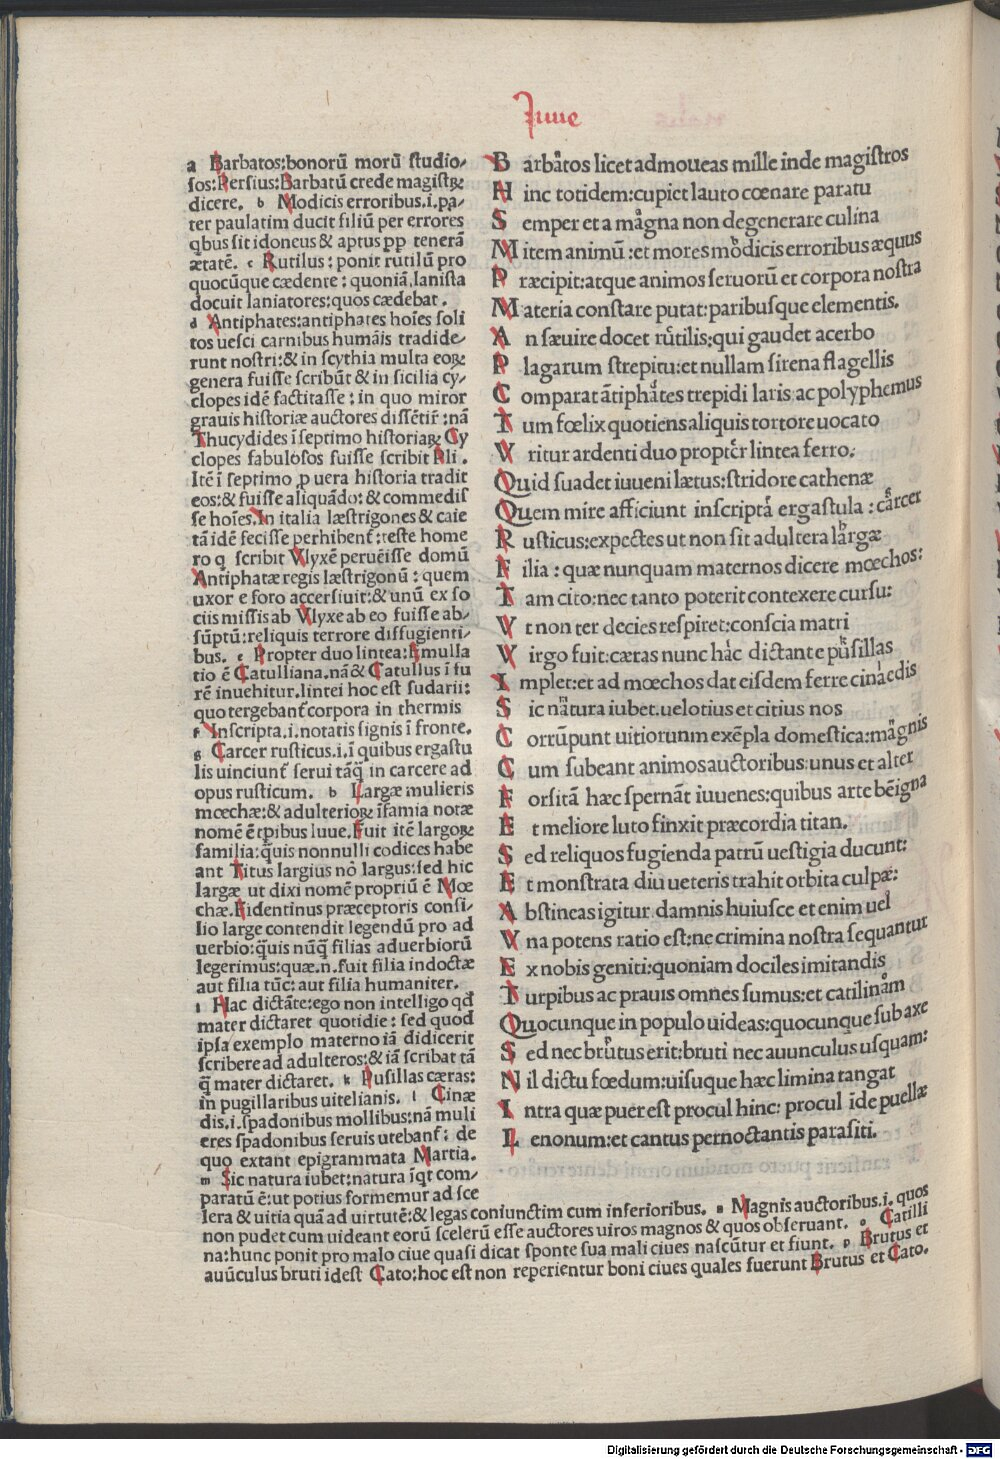 Iuue
a Barbatos:bonorū morū ſtudio-
ſos:Perſius:Barbatū crede magiſtrꝝ
dicere. b Modicis erroribus.i.pa-
ter paulatim ducit filiū per errores
qbus ſit idoneus & aptus pp tenerā
ætatē. c Rutilus: ponit rutilū pro
quocūque cædente: quoniā.laniſta
docuit laniatores:quos cædebat.
d Antiphates:antiphates hoīes ſoli
tos ueſci carnibus humāis tradide-
runt noſtri:& in ſcythia multa eoꝝ
genera fuiſſe ſcribūt & in ſicilia cy-
clopes idē factitaſſe: in quo miror
grauis hiſtoriæ auctores diſſētire:nā
Thucydides ī ſeptimo hiſtoriaꝝ Cy
clopes fabuloſos fuiſſe ſcribit Pli.
Itē ī ſeptimo p uera hiſtoria tradit
eos:& fuiſſe aliquādo:& commediſ
ſe hoīes.In italia læſtrigones & caie
tā idē feciſſe perhibent:teſte home
ro q ſcribit Vlyxē perueīſſe domū
Antiphatæ regis læſtrigonū: quem
uxor e foro accerſiuit:& unū ex ſo
ciis miſſis ab Vlyxe ab eo fuiſſe ab-
ſūptū:reliquis terrore diffugienti-
bus. e Propter duo lintea:Æmulla
tio ē Catulliana.nā & Catullus ī fu
rē inuehitur.lintei hoc eſt ſudarii:
quo tergebant corpora in thermis
f Inſcripta.i.notatis ſignis ī fronte.
g Carcer ruſticus.i.ī quibus ergaſtu
lis uinciunt ſerui tāq̄ in carcere ad
opus ruſticum. h Largæ mulieris
mœchæ:& adulterioꝝ īfamia notæ
nomē ē tpibus Iuue.Fuit itē largoꝝ
familia:q̄uis nonnulli codices habe
ant Titus largius nō largus:ſed hic
largæ ut dixi nomē propriū ē Mœ
chæ.Fidentinus præceptoris conſi-
lio large contendit legendū pro ad
uerbio:q̄uis nūq̄ filias aduerbiorū
legerimus:quæ.n.fuit filia indoctæ
aut filia tūc: aut filia humaniter.
i Hac dictāte:ego non intelligo qd
mater dictaret quotidie: ſed quod
ipſa exemplo materno iā didicerit
ſcribere ad adulteros:& iā ſcribat tā
q̄ mater dictaret. k Puſillas cæras:
in pugillaribus uitelianis. l Cinæ
dis.i.ſpadonibus mollibus:nā muli
eres ſpadonibus ſeruis utebant: de
quo extant epigrammata Martia.
m Sic natura iubet:natura īqt com-
paratū ē:ut potius formemur ad ſce
lera & uitia quā ad uirtutē:& legas coniunctim cum inferioribus. n Magnis auctoribus.i. quos
non pudet cum uideant eorū ſcelerū eſſe auctores uiros magnos & quos obſeruant. o Catilli
na:hunc ponit pro malo ciue quaſi dicat ſponte ſua mali ciues naſcūtur et fiunt. p Brutus et
auūculus bruti ideſt Cato:hoc eſt non reperientur boni ciues quales fuerunt Brutus et Cato.
Barbatos licet admoueas mille inde magiſtros
Hinc totidem:cupiet lauto cœnare paratu
Semper et a magna non degenerare culina
Mitem animū:et mores modicis erroribus æquus
Præcipit:atque animos ſeruorū et corpora noſtra
Materia conſtare putat:paribuſque elementis.
An ſæuire docet rutilis:qui gaudet acerbo
Plagarum ſtrepitu:et nullam ſirena flagellis
Comparat ātiphates trepidi laris ac polyphemus
Tum fœlix quotiens aliquis tortore uocato
Vritur ardenti duo propter lintea ferro.
Quid ſuadet iuueni lætus:ſtridore cathenæ
Quem mire afficiunt inſcripta ergaſtula: carcer
Ruſticus:expectes ut non ſit adultera largæ
Filia: quæ nunquam maternos dicere mœchos:
Tam cito:nec tanto poterit contexere curſu:
Vt non ter decies reſpiret:conſcia matri
Virgo fuit:cæras nunc hac dictante puſillas
Implet:et ad mœchos dat eiſdem ferre cinædis
Sic natura iubet.uelotius et citius nos
Corrūpunt uitiorunm exēpla domeſtica:magnis
Cum ſubeant animos auctoribus:unus et alter
Forſitā hæc ſpernāt iuuenes:quibus arte benigna
Et meliore luto finxit præcordia titan.
Sed reliquos fugienda patrū ueſtigia ducunt:
Et monſtrata diu ueteris trahit orbita culpæ:
Abſtineas igitur damnis huiuſce et enim uel
Vna potens ratio eſt:ne crimina noſtra ſequantur
Ex nobis geniti:quoniam dociles imitandis
Turpibus ac prauis omnes ſumus:et catilinam
Quocunque in populo uideas:quocunque ſub axe
Sed nec brutus erit:bruti nec auunculus uſquam:
Nil dictu fœdum:uiſuque hæc limina tangat
Intra quæ puer eſt procul hinc: procul īde puellæ
Lenonum:et cantus pernoctantis paraſiti.
Digitalisierung gefördert durch die Deutsche Forschungsgemeinschaft - DFG